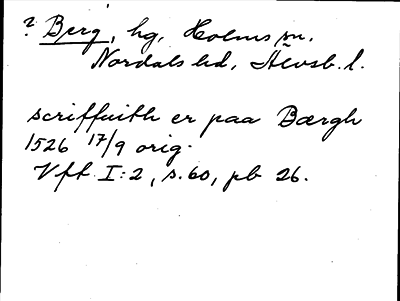 ? Berg, hg, Holms sn.
Nordals hd, Älvsb. l.
scriffuith er paa Bærgh
1526 17/9 orig.
Vft I:2, s. 60, pb 26.